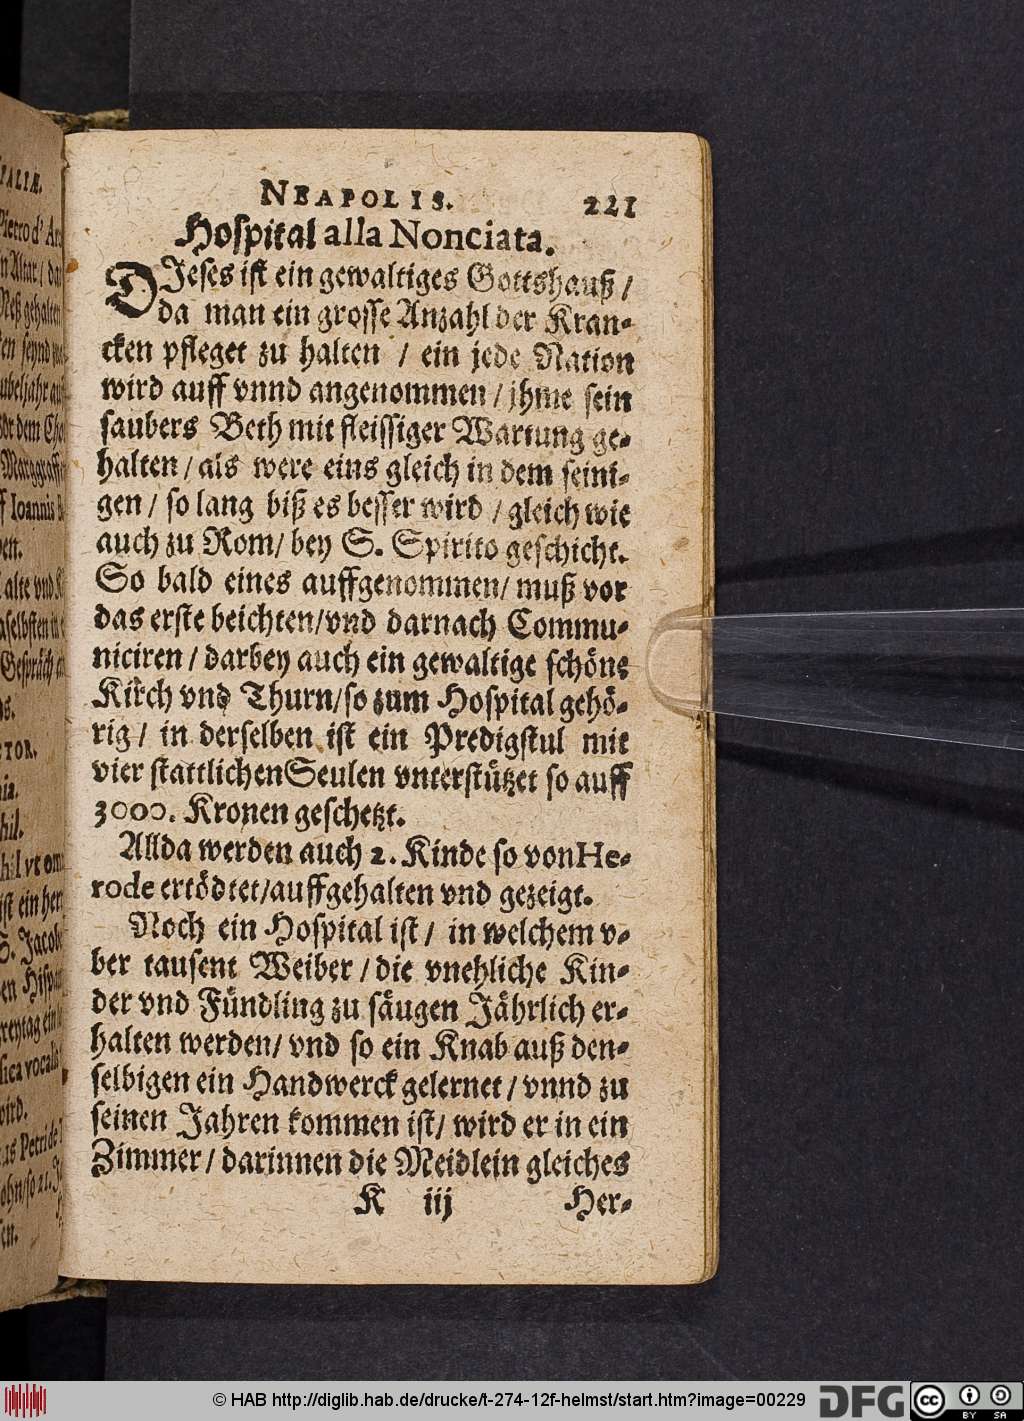 NEAPOLIS. 221
Hospital alla Nonciata.
DJeses ist ein gewaltiges Gottshauß /
da man ein grosse Anzahl der Kran-
cken pfleget zu halten / ein jede Nation
wird auff vnnd angenommen / jhme sein
saubers Beth mit fleissiger Wartung ge-
halten / als were eins gleich in dem seini-
gen / so lang biß es besser wird / gleich wie
auch zu Rom / bey S. Spirito geschicht.
So bald eines auffgenommen / muß vor
das erste beichten / vnd darnach Commu-
niciren / darbey auch ein gewaltige schöne
Kirch vnd Thurn / so zum Hospital gehö-
rig / in derselben ist ein Predigstul mit
vier stattlichen Seulen vnterstützet so auff
3000. Kronen geschetzt.
Allda werden auch 2. Kinde so von He-
rode ertödtet / auffgehalten vnd gezeigt.
Noch ein Hospital ist / in welchem v-
ber tausent Weiber / die vnehliche Kin-
der vnd Fündling zu säugen Jährlich er-
halten werden / vnd so ein Knab auß den-
selbigen ein Handwerck gelernet / vnnd zu
seinen Jahren kommen ist / wird er in ein
Zimmer / darinnen die Meidlein gleiches
K iij Her-
© HAB http://diglib.hab.de/drucke/t-274-12f-helmst/start.htm?image=00229 DFG cc BY SA